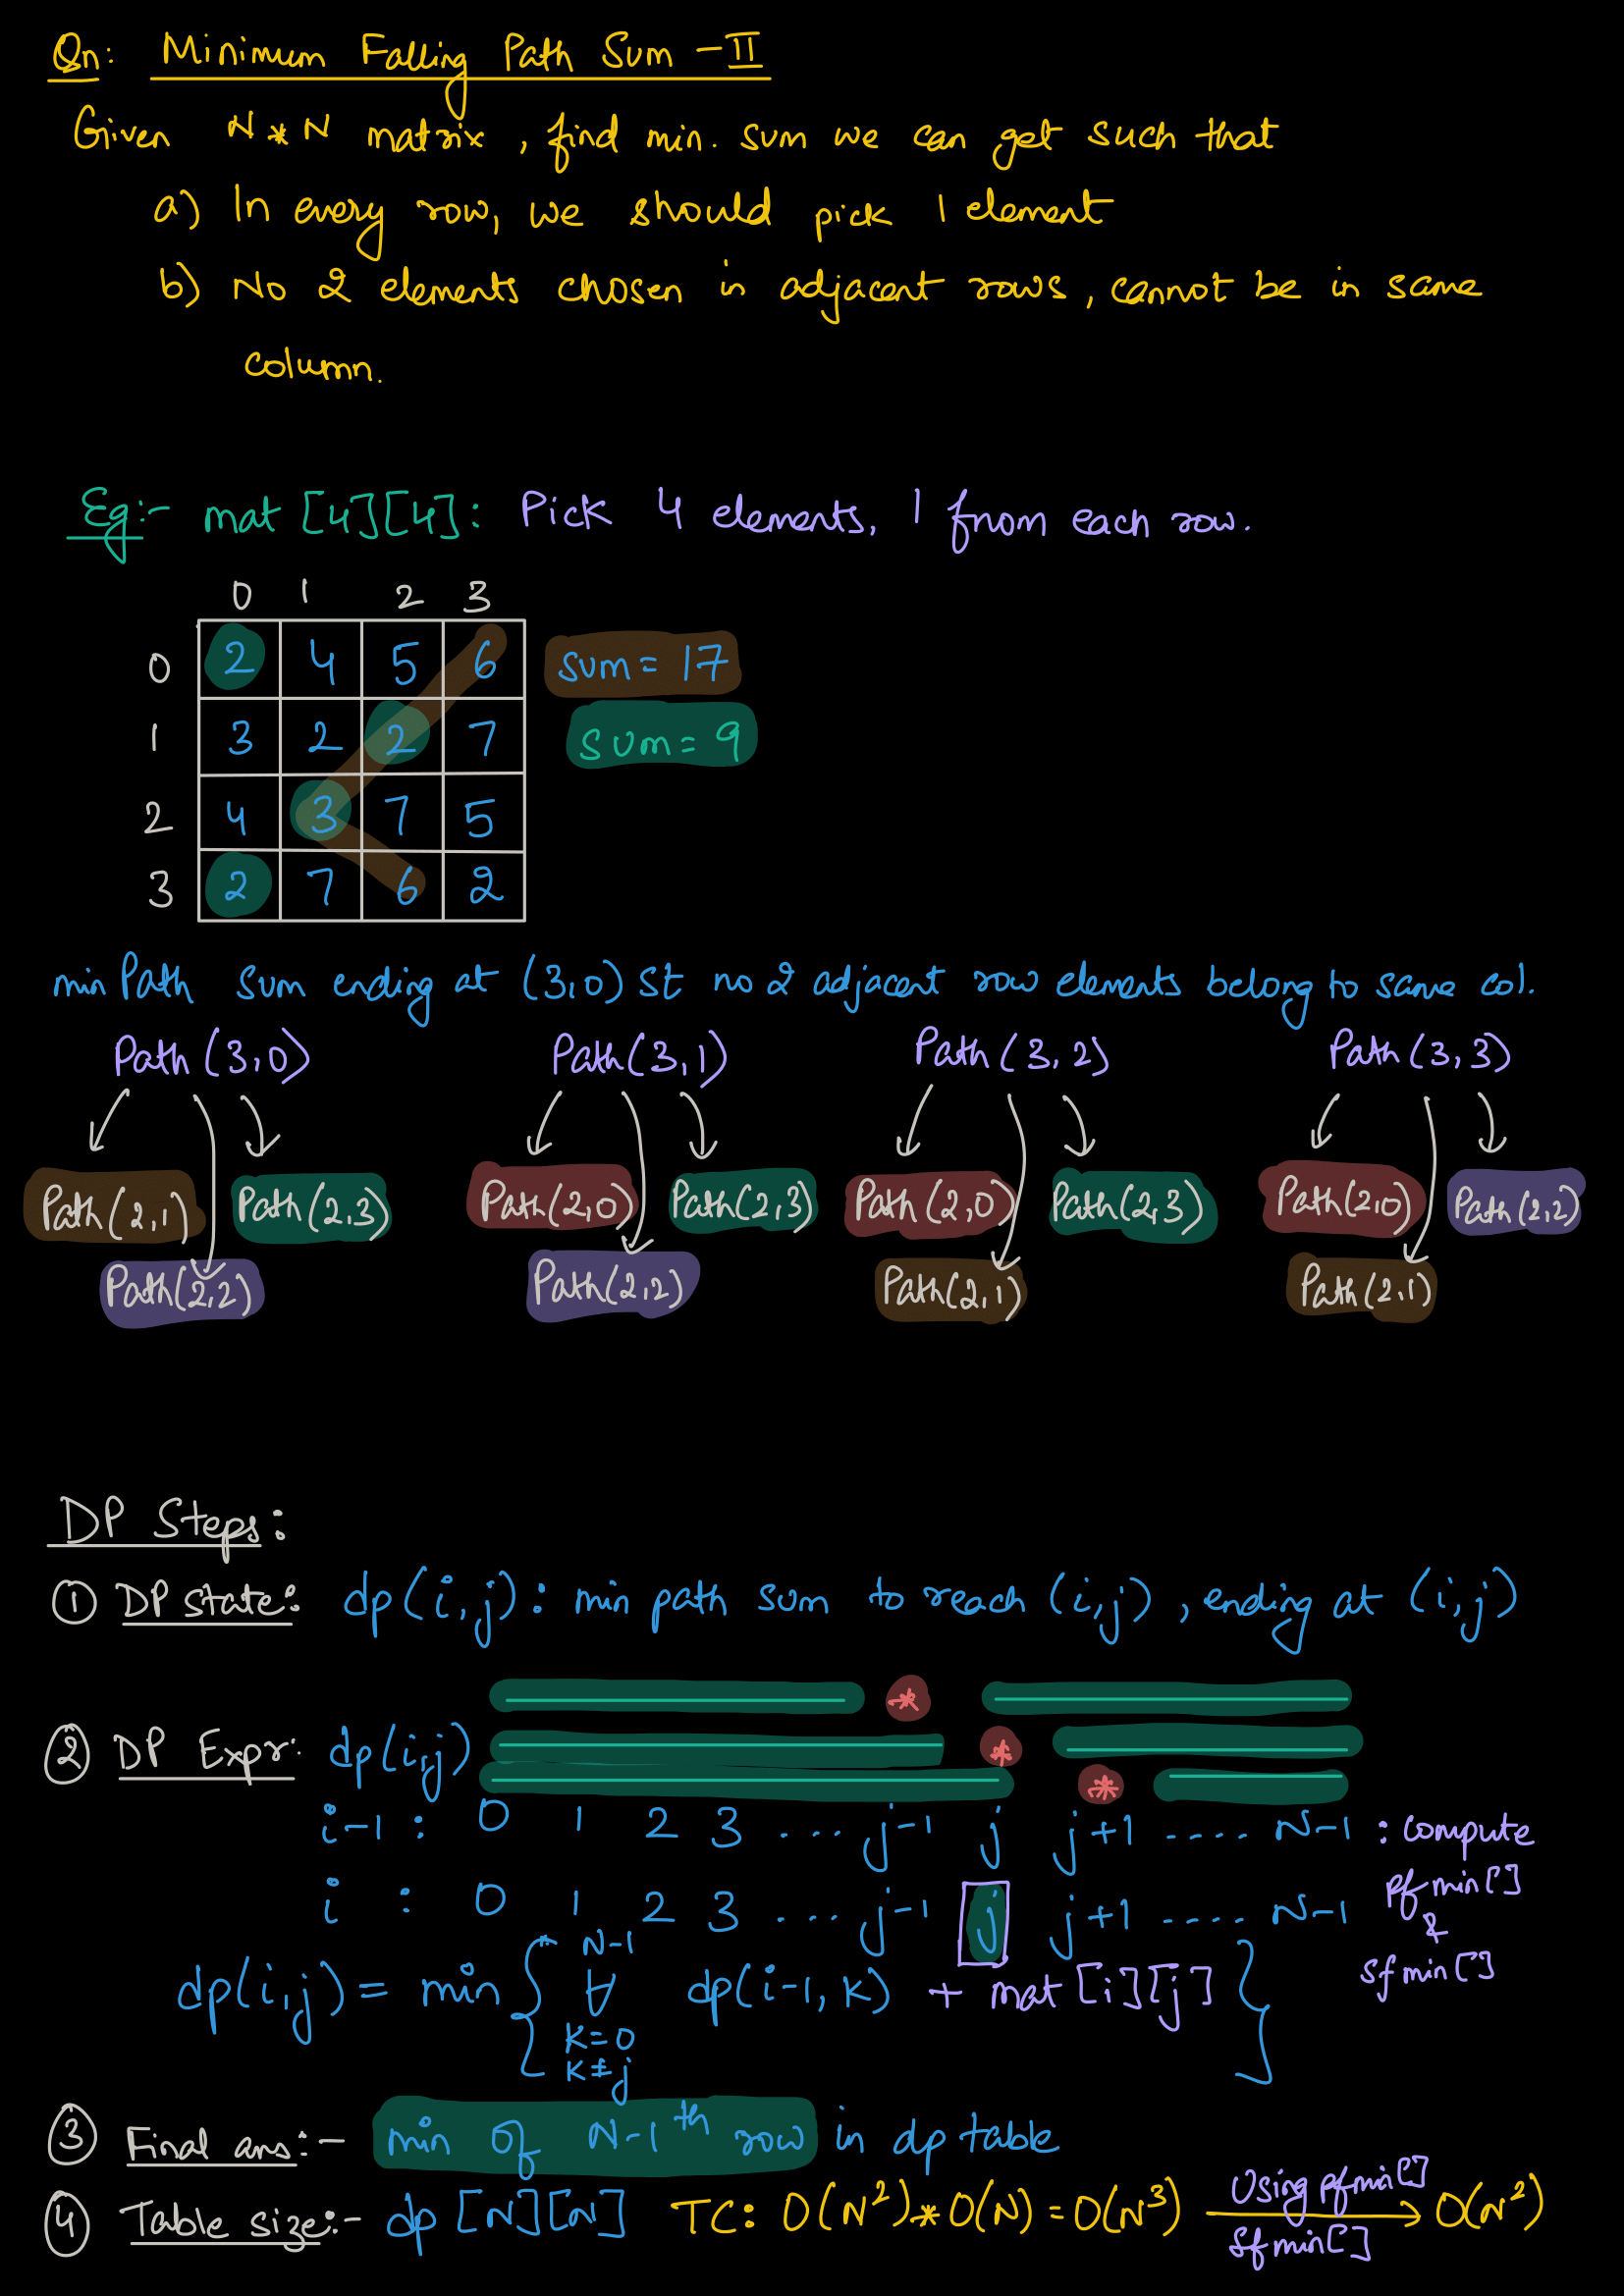 Qn: Minimum Falling Path Sum - II
Given N*N matrix, find min. sum we can get such that
a) In every row, we should pick 1 element
b) No 2 elements chosen in adjacent rows, cannot be in same
column.
Eg:- mat [4][4]: Pick 4 elements, 1 from each row.
0 1 2 3
0 2 4 5 6 sum = 17
1 3 2 2 7 sum = 9
2 4 3 7 5
3 2 7 6 2
min Path sum ending at (3,0) st no 2 adjacent row elements belong to same col.
Path (3,0) Path(3,1) Path (3,2) Path (3,3)
Path(2,1) Path(2,3) Path(2,0) Path(2,3) Path(2,0) Path(2,3) Path(2,0) Path(2,2)
Path(2,2) Path(2,2) Path(2,1) Path(2,1)
DP Steps:
① DP state: dp(i,j): min path sum to reach (i,j), ending at (i,j)
*
② DP Expr: dp(i,j) *
*
i-1 : 0 1 2 3 ... j-1 j j+1 .... N-1 : compute
pfmin[]
i : 0 1 2 3 ... j-1 j j+1 .... N-1
&
sfmin[]
N-1
dp(i,j) = min { ∀ dp(i-1, K) + mat[i][j] }
K=0
K≠j
③ Final ans:- min of N-1th row in dp table
④ Table size:- dp [N][N] TC: O(N²)*O(N) = O(N³) Using pfmin[] sfmin[] → O(N²)